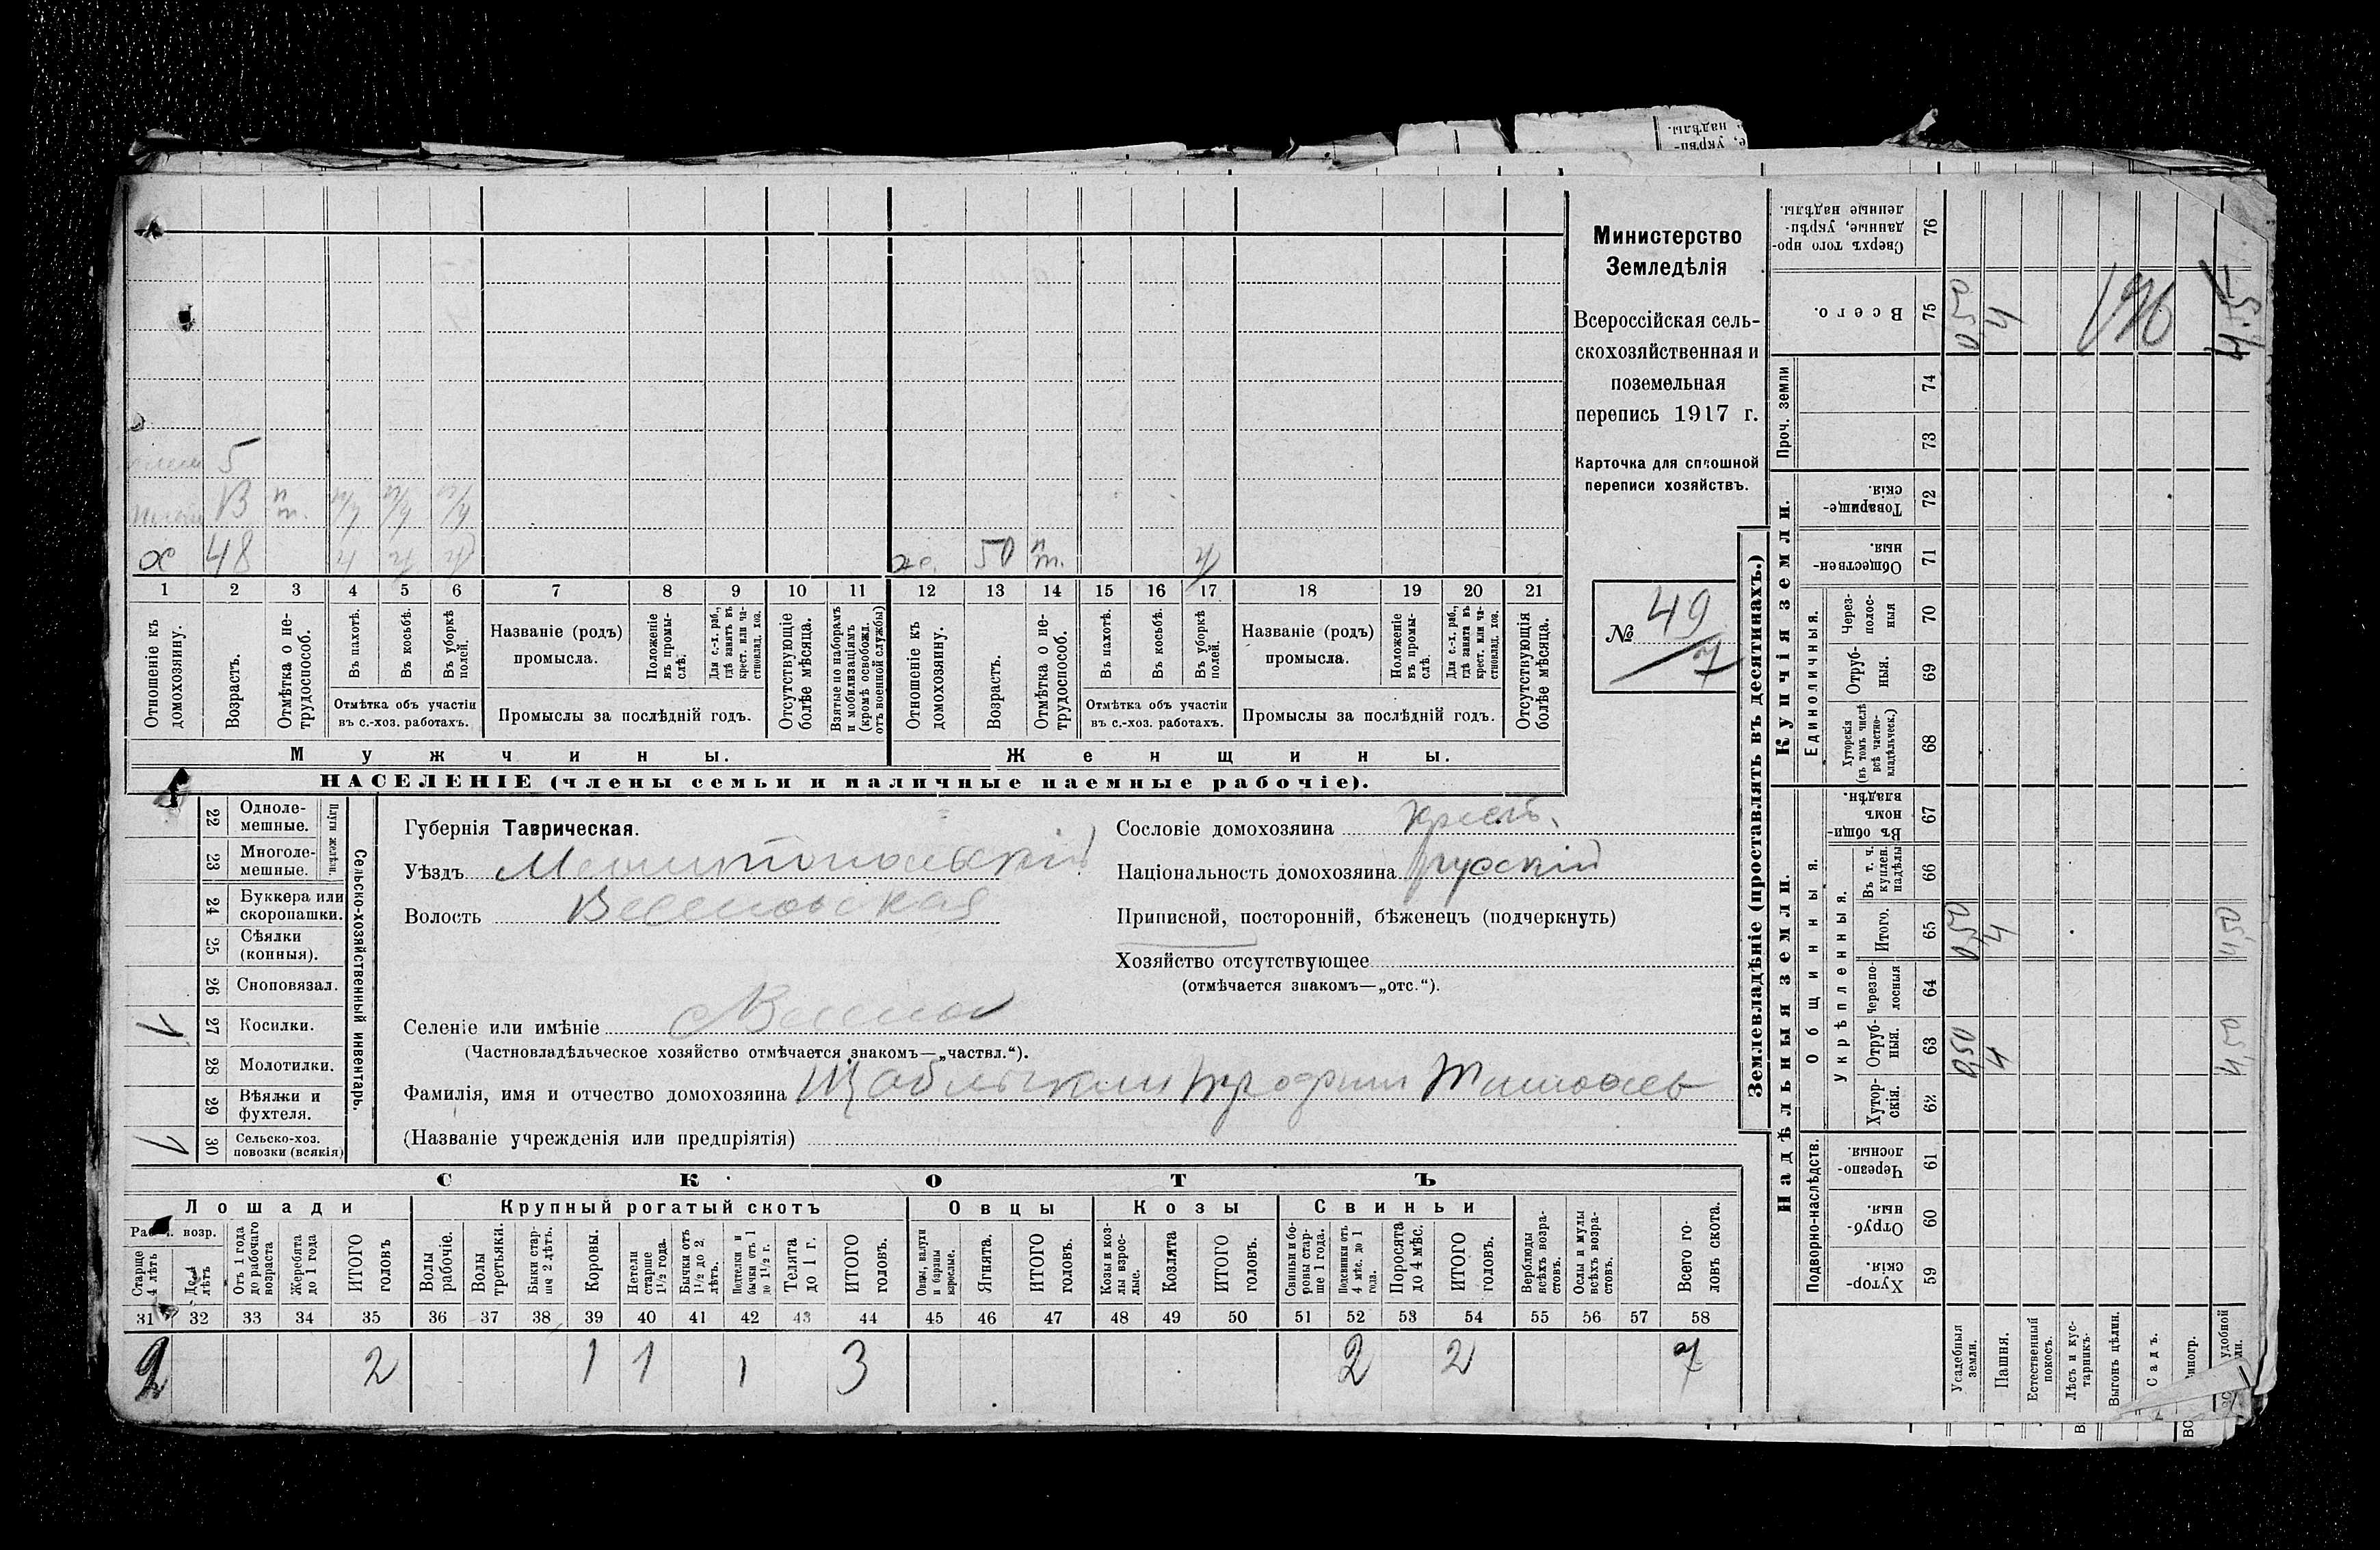 надѣлы.
Министерство
Земледѣлія
Всероссійская сель-
скохозяйственная и
поземельная
перепись 1917 г.
Карточка для сплошной
переписи хозяйствъ.
№ 49/7
5
х 48 ч ч ч
ж 50 п/т. ч
1 2 3 4 5 6 7 8 9 10 11 12 13 14 15 16 17 18 19 20 21
Отношеніе къ домохозяину.
Возрастъ.
Отмѣтка о не-трудоспособ.
Въ пахотѣ.
Въ косьбѣ.
Въ уборкѣ полей.
Отмѣтка объ участіи
въ с.-хоз. работахъ.
Названіе (родъ)
промысла.
Положеніе въ промы-слѣ.
Для с.-х. раб., гдѣ занятъ въ крест. или ча-стновлад. хоз.
Промыслы за послѣдній годъ.
Отсутствующіе болѣе мѣсяца.
Взятые по наборамъ и мобилизаціямъ (кромѣ освобожд. отъ военной службы)
Отношеніе къ домохозяину.
Возрастъ.
Отмѣтка о не-трудоспособ.
Въ пахотѣ.
Въ косьбѣ.
Въ уборкѣ полей.
Отмѣтка объ участіи
въ с.-хоз. работахъ.
Названіе (родъ)
промысла.
Положеніе въ промы-слѣ.
Для с.-х. раб., гдѣ занята въ крест. или ча-стновлад. хоз.
Промыслы за послѣдній годъ.
Отсутствующія болѣе мѣсяца.
Мужчины.
Женщины.
НАСЕЛЕНІЕ (члены семьи и наличные наемные рабочіе).
Сельско-хозяйственный инвентарь.
Плуги желѣзн.
22 Одноле-мешные.
23 Многоле-мешные.
24 Буккера или скоропашки.
25 Сѣялки (конныя).
26 Сноповязал.
1 27 Косилки.
28 Молотилки.
29 Вѣялки и фухтеля.
1 30 Сельско-хоз. повозки (всякія)
Губернія Таврическая.
Уѣздъ Мелитопольскій
Волость Веселовская
Сословіе домохозяина крест.
Національность домохозяина русскій
Приписной, посторонній, бѣженецъ (подчеркнуть)
Хозяйство отсутствующее
(отмѣчается знакомъ—„отс.“).
Селеніе или имѣніе
(Частновладѣльческое хозяйство отмѣчается знакомъ—„частвл.“).
Фамилія, имя и отчество домохозяина
(Названіе учрежденія или предпріятія)
СКОТЪ
Лошади
Крупный рогатый скотъ
Овцы
Козы
Свиньи
Старше 4 лѣтъ
Отъ 1 года до рабочаго возраста
Жеребята до 1 года
ИТОГО головъ
Волы рабочіе.
Волы третьяки.
Быки стар-ше 2 лѣтъ.
Коровы.
Нетели старше 1½ года.
Бычки отъ 1½ до 2 лѣтъ.
Подтелки и бычки отъ 1 до 1½ г.
Телята до 1 г.
ИТОГО головъ.
Овцы, валухи и бараны взрослые.
Ягнята.
ИТОГО головъ.
Козы и коз-лы взрос-лые.
Козлята
ИТОГО головъ.
Свиньи и бо-ровы стар-ше 1 года.
Подсвинки отъ 4 мѣс. до 1 года.
Поросята до 4 мѣс.
ИТОГО головъ.
Верблюды всѣхъ возра-стовъ.
Ослы и мулы всѣхъ возра-стовъ.
Всего го-ловъ скота.
31 32 33 34 35 36 37 38 39 40 41 42 43 44 45 46 47 48 49 50 51 52 53 54 55 56 57 58
2 2 1 1 1 3 2 2 7
Землевладѣніе (проставлять въ десятинахъ.)
Надѣльныя земли.
Купчія земли.
Проч. земли
Подворно-наслѣдств.
Общинныя.
Укрѣпленныя.
Единоличныя.
59 Хутор-скія.
60 Отруб-ныя.
61 Черезпо-лосныя
62 Хутор-скія.
63 Отруб-ныя. 0,50 4 4,50
64 Черезпо-лосныя
65 Итого. 0,50 4 4,50
66 Въ т. ч. куплен. надѣлы
67 Въ общи-номъ владѣн.
68 Хуторскія (въ томъ числѣ всѣ частно-владѣльческ.)
69 Отруб-ныя.
70 Через-полос-ныя
71 Обществен-ныя.
72 Товарище-скія.
73
74
75 Всего. 0,50 4
76 Сверхъ того про-данные, укрѣп-ленные надѣлы.
Усадебныя земли.
Пашня.
Естественный покосъ.
Лѣсъ и кус-тарникъ.
Выгонъ цѣлин.
Садъ.